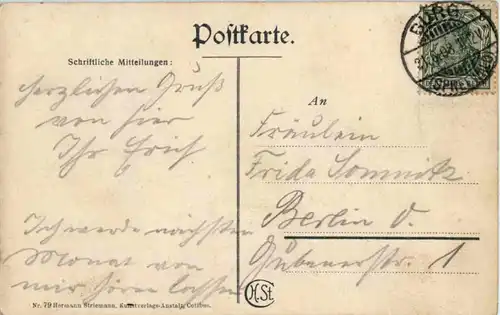 Postkarte.
Schriftliche Mitteilungen:
An
herzlichen Gruß
von hier
Ihr Erich
Ich werde nächsten
Monat von
mir hören lassen
Fräulein
Frida Somnitz
Berlin O.
Gubenerstr. 1
BURG
(SPREEWALD)
Nr. 79 Hermann Striemann, Kunstverlags-Anstalt, Cottbus.
H.St